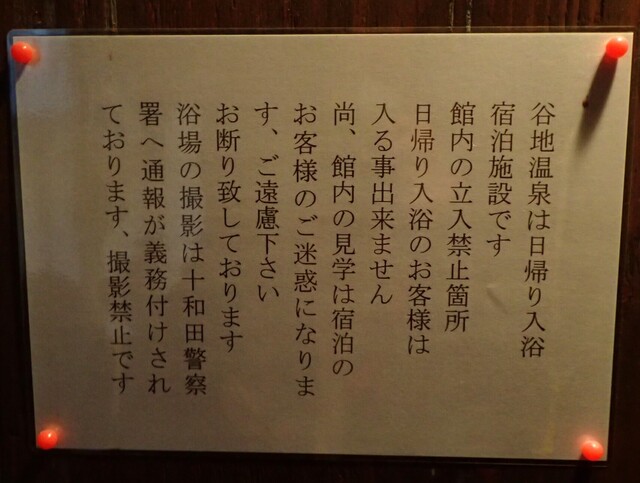 谷地温泉は日帰り入浴
宿泊施設です
館内の立入禁止箇所
日帰り入浴のお客様は
入る事出来ません
尚、館内の見学は宿泊の
お客様のご迷惑になりま
す、ご遠慮下さい
お断り致しております
浴場の撮影は十和田警察
署へ通報が義務付けされ
ております、撮影禁止です